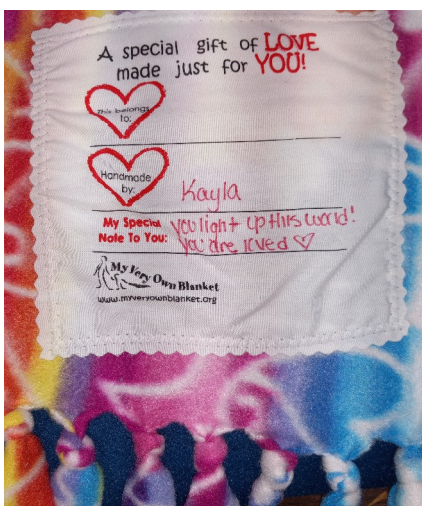 A special gift of LOVE
made just for YOU!
This belongs
to:
Handmade
by:
Kayla
My Special
Note To You:
you light up this world!
you are loved ♡
My Very Own Blanket
www.myveryownblanket.org